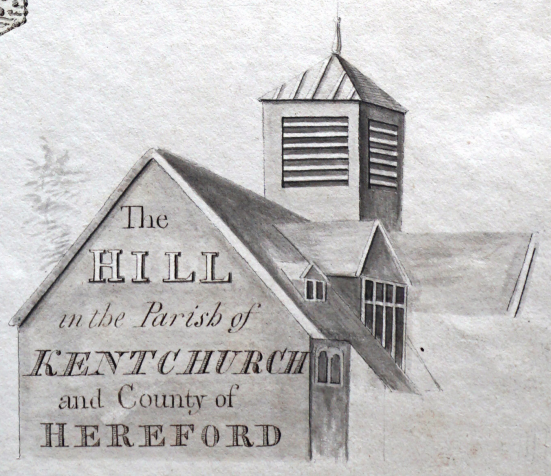 The
HILL
in the Parish of
KENTCHURCH
and County of
HEREFORD